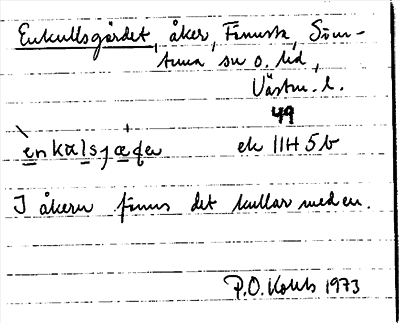 Enkullsgärdet, åker, Finnsta, Söm-
tuna sn o. hd,
Västm. l.
49
ènkalsjæ̣ḍa ek 11H 5b
I åkern finns det kullar med en.
P.O. Kohls 1973